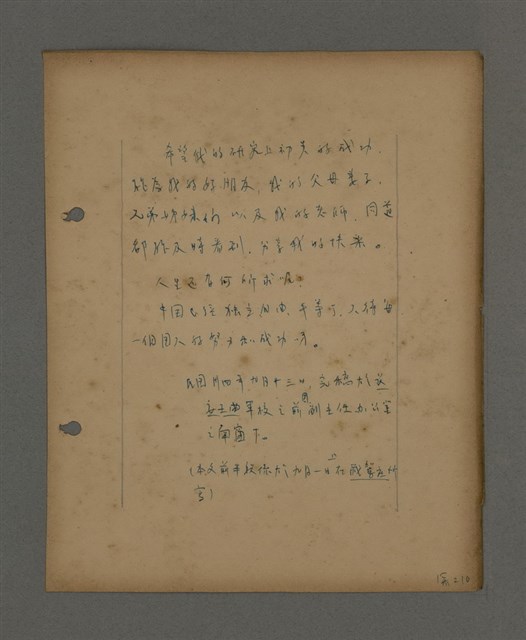 希望我的研究上初步的成功
能為我的好朋友,我的父母妻子,
兄弟姊妹們以及我的老師,同道
都能及時看到,分享我的快樂。
人生還有何所求呢。
中國已經獨立自由,平等了,只待每
一個國人的努力和成功了。
民國卅四年九月十三日,完稿於
軍校之前副主任办公室
之南窗下。
(本文前半段係於九月一日在成
寫)